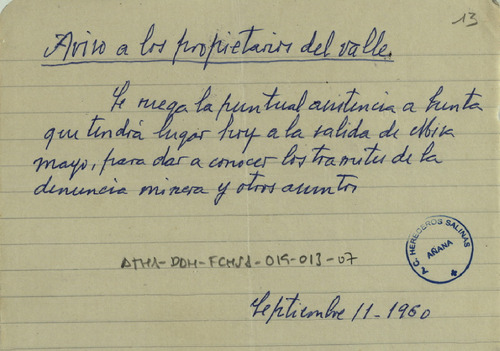 13
Aviso a los propietarios del valle.
Se ruega la puntual asistencia a Junta
que tendrá lugar hoy a la salida de Misa
mayo, para dar a conocer los tramites de la
denuncia minera y otros asuntos
ATHA-DOH-FCMSA-019-013-07
C. HEREDEROS SALINAS
AÑANA
Septiembre 11-1960